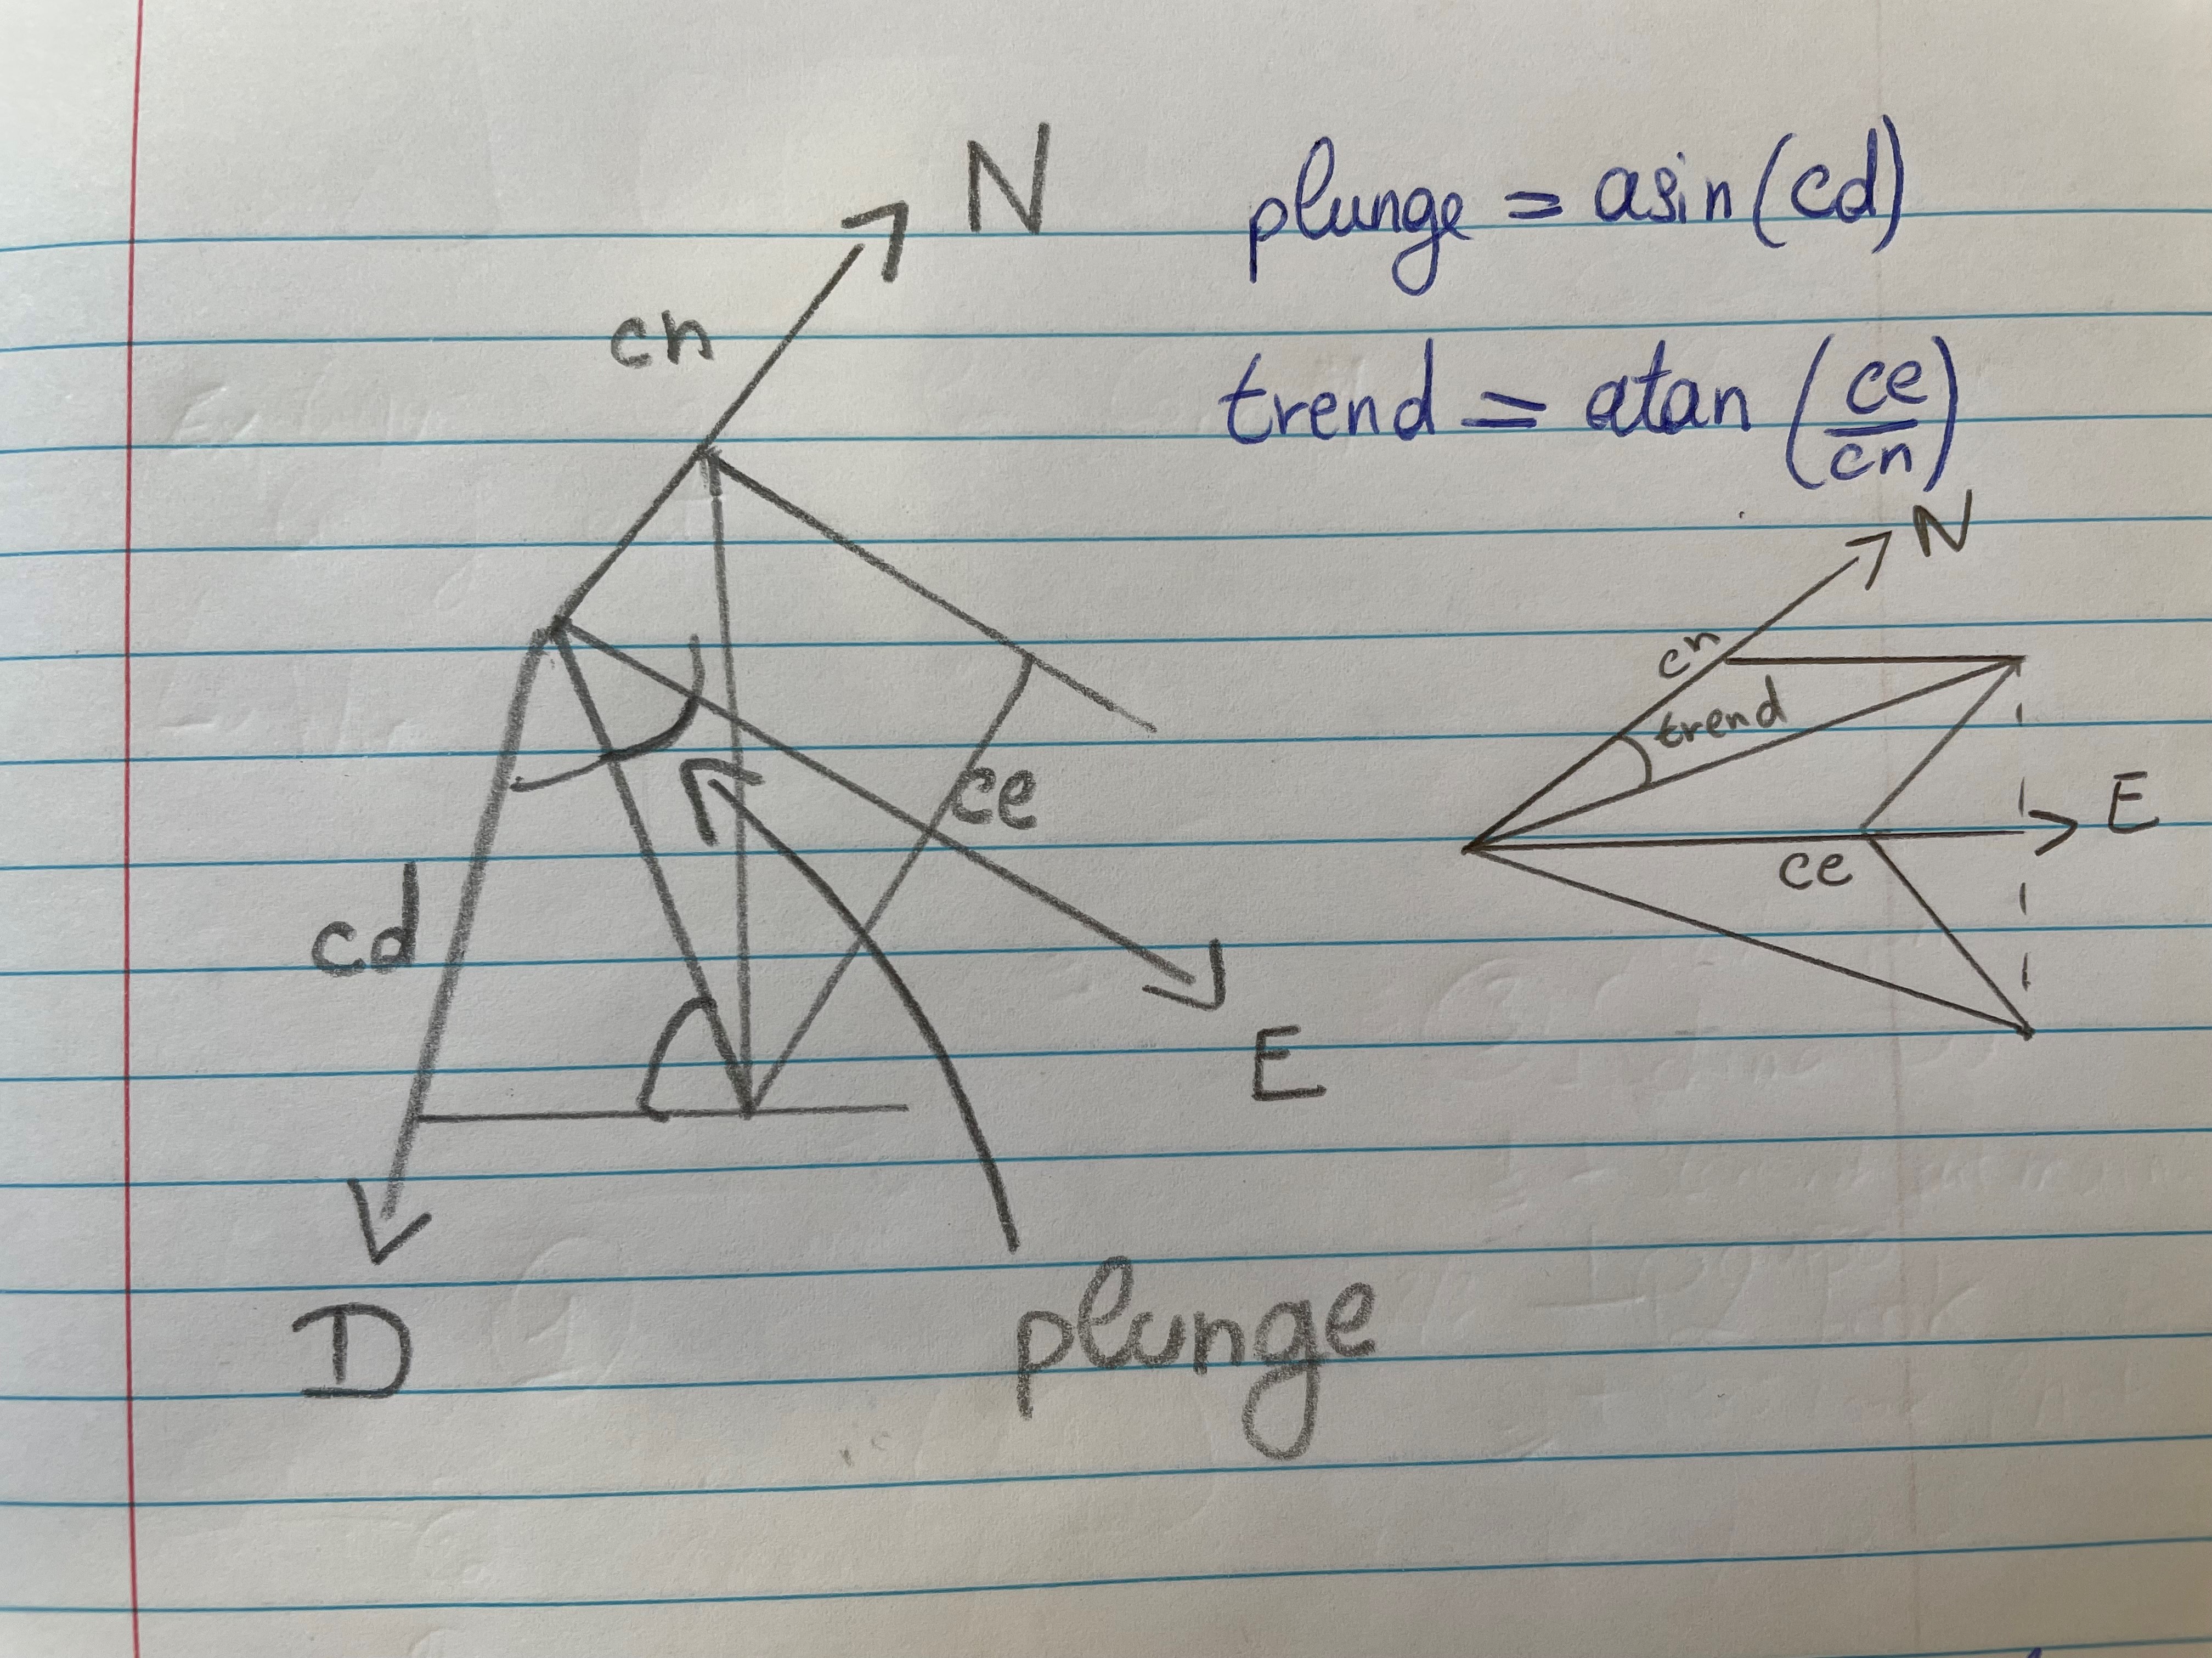 N
plunge = asin(cd)
cn
trend = atan (ce/cn)
N
cn
trend
ce
E
ce
cd
E
D
plunge